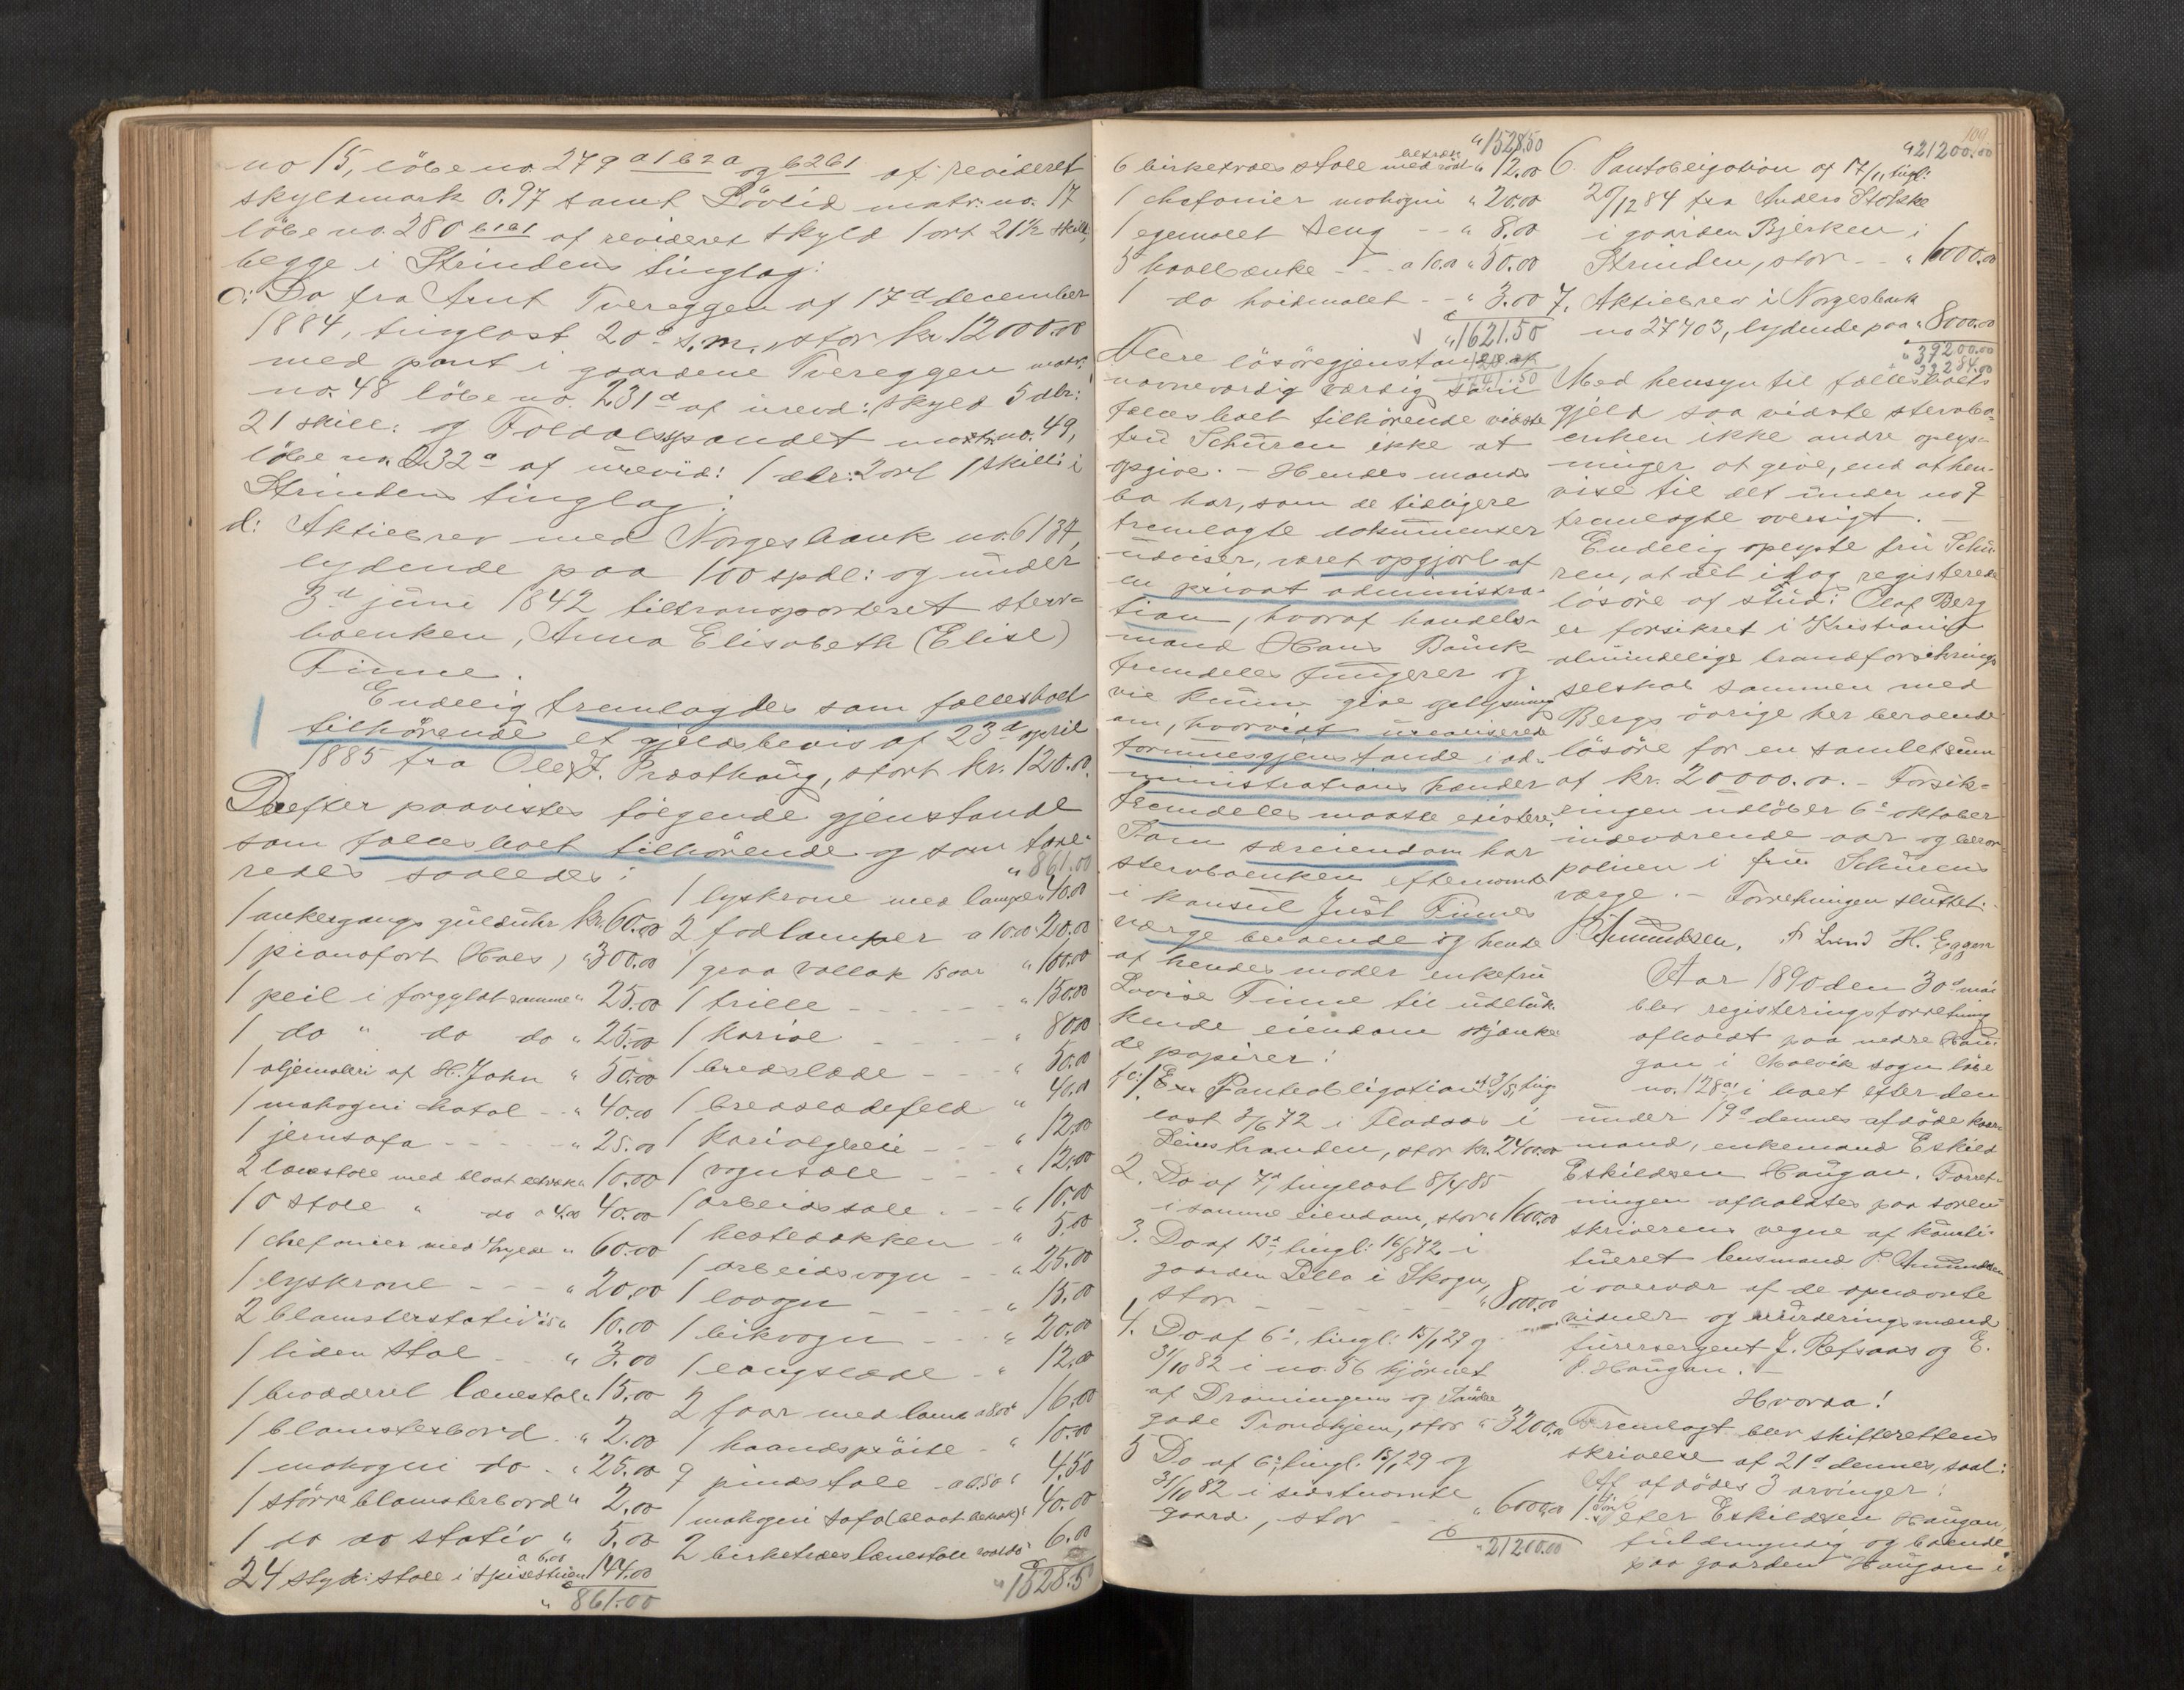 no 15, löbe no. 279 a1b2a og b2b1 af revideret
skyldmark 0.97 samt Lövlid matr: no. 17
löbe no. 280 b1a1 af revideret skyld 1 ort 21 1/2 skill,
begge i Strindens tinglag:
c: Do fra Arnt Tvereggen af 17d december
1884, tinglæst 20d s.m., stor kr. 12000.00
med pant i gaardene Tvereggen matr:
no. 48 löbe no. 231a af urevd: skyld 5 dlr:
21 skill: og Foldalsspandet matr. no. 49,
löbe no. 232a af urevid: 1 dlr: 2 ort 1 skill: i
Strindens tinglag:
d: Aktiebrev med Norges bank no. 6134,
lydende paa 100 spdl: og under
3d juni 1842 tiltransporteret sterv-
boenken, Anna Elisabeth (Elise)
Finne.
Endelig fremlagdes som fællesboet
tilhörende et gjeldsbevis af 23d april
1885 fra Ole J. Præsthaug, stort kr. 120.00.
Derefter paavistes fölgende gjenstande
som fællesboet tilhörende og som taxe-
redes saaledes:
1 ankergangs guldúhr kr. 60.00
1 pianofort (Hals) " 300.00
1 peil i forgyldt ramme " 25.00
1 do " do do " 25.00
1 oljemaleri af H. John " 50.00
1 mahogni chatol - " 40.00
1 jernsofa - - - - " 25.00
2 lænestole med blaat betræk " 10.00
10 stole " do a 4.00 40.00
1 chefonier med hylde " 60.00
1 lyskrone - - - " 20.00
2 blomsterstativ a 5 " 10.00
1 liden stol - - " 3.00
1 broderet lænestol " 15.00
1 blomsterbord - " 2.00
1 mahogni do - " 25.00
1 större blomsterbord " 2.00
1 do do stativ " 5.00
24 styk: stole i spisestuen a 6.00 144.00
" 861.00
" 861.00
1 lyskrone med lamper " 40.00
2 fodlamper a 10.00 20.00
1 graa vallak 15 aar " 100.00
1 trille - - - - - " 150.00
1 kariol - - - - " 80.00
1 bredslæde - - - " 50.00
1 bredslædefeld " 40.00
1 kariolgreie - - " 12.00
1 vognsæle - - " 12.00
1 arbeidssæle - - " 10.00
1 hestedækken - " 5.00
1 arbeidsvogn - - " 25.00
1 lovogn - - - - " 15.00
1 bikvogn - - - " 20.00
1 langslæde - - " 12.00
2 faar med lam a 8.00 16.00
1 haandspröite - " 10.00
9 pindstole - a 0.50 " 4.50
1 mahogni sofa (blaat betræk) " 40.00
2 birketræs lænestole 6.00
" 1528.50
" 1528.50
6 birketræes stole med rödt betræk " 12.00
1 chefonier mahogni " 20.00
1 egemalet seng - - " 8.00
5 havebænke - - - a 10.00 " 50.00
1 do hvidmalet - - " 3.00
" 1621.50
120.00
1741.50
Flere lösöregjenstande af
nævneværdig værdig som
fællesboet tilhörende vidste
fru Schúren ikke at
opgive. - Hendes mands
bo har, som de tidligere
fremlagte dokumenter
udviser, været opgjort af
en privat administra-
tion, hvoraf handels-
mand Hans Bauck
fremdeles fungerer og
vil kunne give oplysning
om, hvorvidt urealiserede
formuesgjenstande i ad-
ministrations hænder
fremdeles maatte existere.
Som særeiendom har
stervboenken efternævnte
i konsul Just Finnes
værge beroende og hende
af hendes moder enkefru
Lovise Finne til udeluk-
kende eiendom skjænke-
de papirer:
1. Panteobligation af 3/5, ting-
læst 3/6 72 i Fladaas i
Leinstranden, stor kr. 2400.00
2. Do af 7d, tinglæst 8/4 85
i samme eiendom, stor " 1600.00
3. Do af 13d tingl: 16/8 72 i
gaarden Lello i Skogn,
stor - - - - - - - " 8000.00
4. Do af 6d, tingl: 15/1 29 og
31/10 82 i no. 56 hjörnet
af Dronningens og Söndre
gade Trondhjem, stor " 3200.00
5 Do af 6d, tingl. 15/1 29 og
31/10 82 i sidstnævnte
gaard, stor - - - " 6000.00
" 21200.00
100
" 21200.00
6. Pantobligation af 17/11, tingl:
20/12 84 fra Anders Stokke
i gaarden Bjerken i
Strinden, stor - - " 10000.00
7. Aktiebrev i Norges bank
no 27703, lydende paa " 8000.00
" 39200.00
Med hensyn til fællesboets
gjeld saa vidste stervbo-
enken ikke andre oplys-
ninger at give, end at hen-
vise til det under no 9
fremlagte oversigt. -
Endelig oplyste fru Schú-
ren, at det idag registerede
lösöre af stud: Olaf Berg
er forsikret i Kristiania
almindelige brandforsikrings
selskab sammen med
Bergs övrige her beroende
lösöre for en samlet sum
af kr. 20000.00. - Forsik-
ringen udlöber 6d oktober
indeværende aar og beror
polisen i fru Schúrens
værge. - Forretningen sluttet: -
P. Amundsen. A Lund H. Eggen
Aar 1890 den 30d mai
blev registeringsforretning
afholdt paa nedre Hau-
gan i Malvik sogn löbe
no. 128a1 i boet efter den
under 19d dennes afdöde kaar-
mand, enkemand Eskild
Eskildsen Haugan. Forret-
ningen afholdtes paa soren-
skriverens vegne af konsti-
tueret lensmand P. Amundsen
i overvær af de opnævnte
vidner og vurderingsmænd
furersergent J. Refsaas og E.
P. Haugan. -
Hvorda!
Fremlagt blev skifterettens
skrivelse af 21d dennes, saal:
Af afdödes 3 arvinger:
1. Peter Eskildsen Haugan,
fuldmyndig og boende
paa gaarden Haugan i